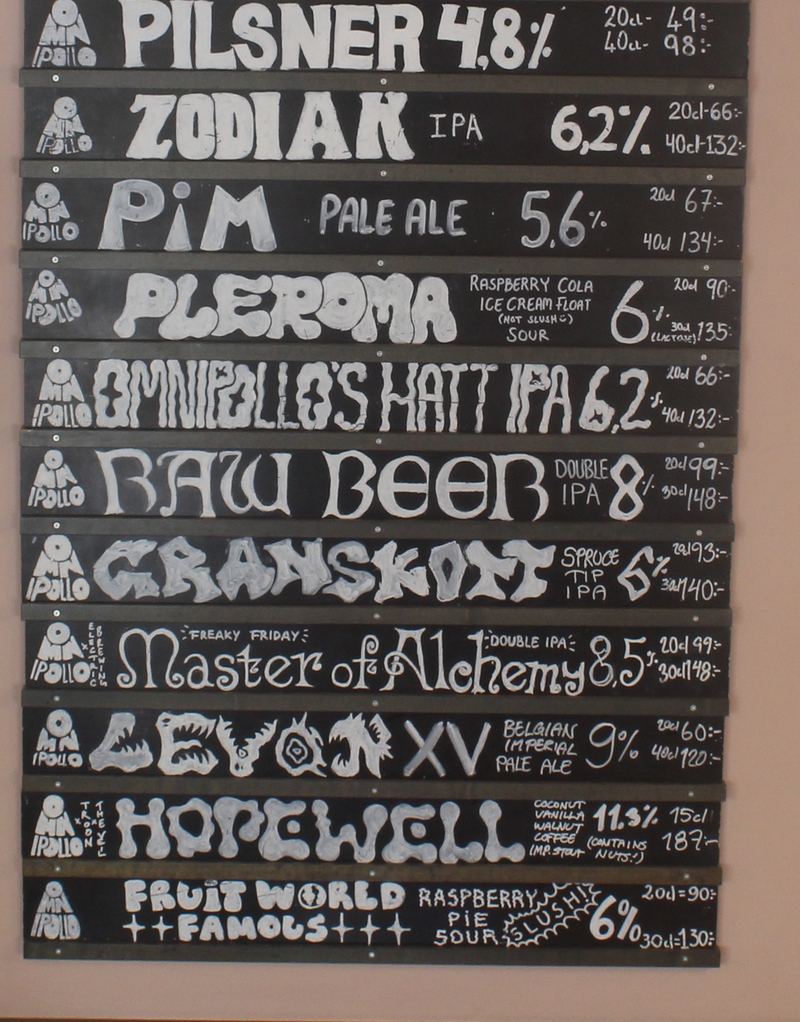 OMNIPOLLO PILSNER 4,8% 20cl- 49:-
40cl- 98:-
OMNIPOLLO ZODIAK IPA 6,2% 20cl-66:-
40cl-132:-
OMNIPOLLO PiM PALE ALE 5,6% 20cl 67:-
40cl 134:-
OMNIPOLLO PLEROMA RASPBERRY COLA
ICE CREAM FLOAT
(NOT SLUSH)
SOUR
6% (LACTOSE) 20cl 90:-
30cl 135:-
OMNIPOLLO OMNIPOLLO'S HATT IPA 6,2% 20cl 66:-
40cl 132:-
OMNIPOLLO RAW BEER DOUBLE
IPA
8% 20cl 99:-
30cl 148:-
OMNIPOLLO GRANSKOTT SPRUCE
TIP
IPA
6% 20cl 93:-
30cl 140:-
OMNIPOLLO x ELECTRIC BREWING
FREAKY FRIDAY DOUBLE IPA
Master of Alchemy 8,5% 20cl 99:-
30cl 148:-
OMNIPOLLO LEVON XV BELGIAN
IMPERIAL
PALE ALE
9% 20cl 60:-
40cl 120:-
OMNIPOLLO x TROON x THE VEIL
HOPEWELL COCONUT
VANILLA
WALNUT
COFFEE
IMP. STOUT
11.5% (CONTAINS
NUTS!)
15cl
187:-
OMNIPOLLO FRUiT WORLD
FAMOUS
RASPBERRY
PiE
SOUR
SLUSH!
6% 20cl=90:-
30cl=130:-